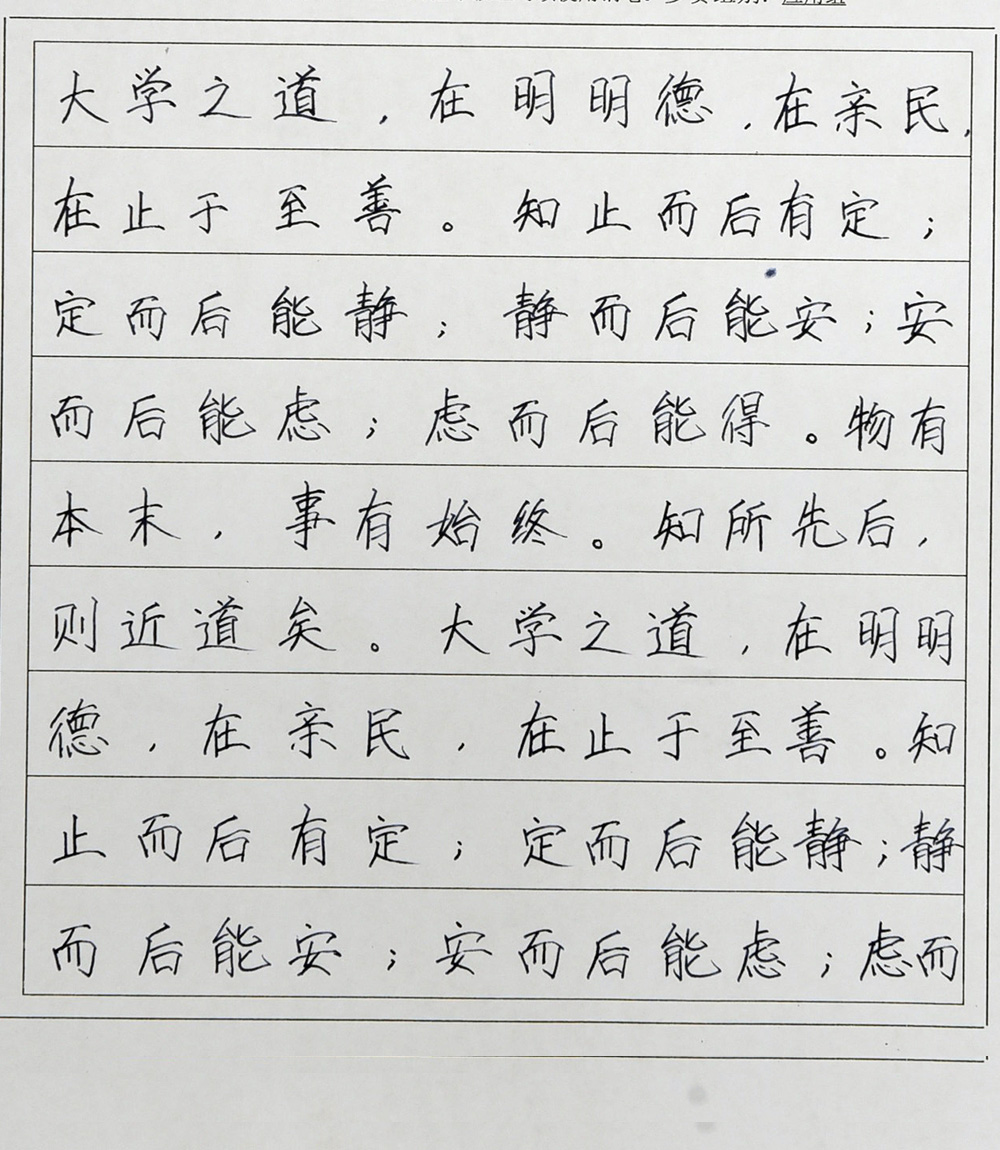 参赛组别：应用组
大学之道，在明明德，在亲民，
在止于至善。知止而后有定；
定而后能静；静而后能安；安
而后能虑；虑而后能得。物有
本末，事有始终。知所先后，
则近道矣。大学之道，在明明
德，在亲民，在止于至善。知
止而后有定；定而后能静；静
而后能安；安而后能虑；虑而